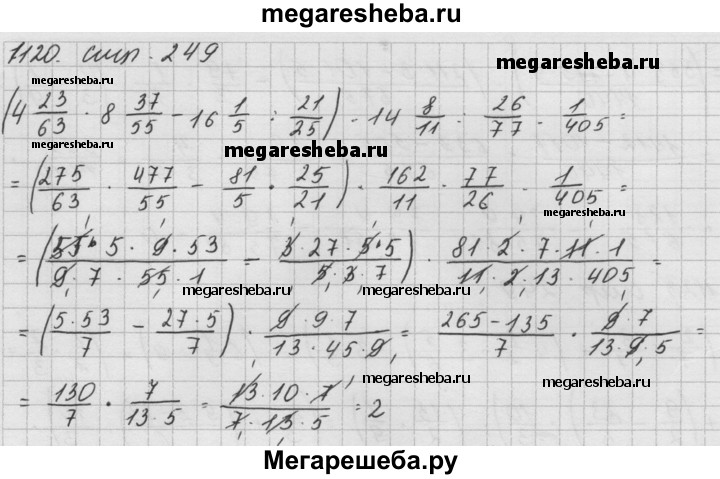 megaresheba.ru
1120. стр. 249
megaresheba.ru
megaresheba.ru
(4 23/63 · 8 37/55 − 16 1/5 : 21/25) · 14 8/11 : 26/77 · 1/405 =
megaresheba.ru
= (275/63 · 477/55 − 81/5 · 25/21) · 162/11 · 77/26 · 1/405 =
megaresheba.ru
= (55 · 5 · 9 · 53 / 9 · 7 · 55 · 1 − 3 · 27 · 5 · 5 / 5 · 3 · 7) · 81 · 2 · 7 · 11 · 1 / 11 · 2 · 13 · 405 =
megaresheba.ru megaresheba.ru
= (5 · 53 / 7 − 27 · 5 / 7) · 9 · 9 · 7 / 13 · 45 · 9 = 265 − 135 / 7 · 9 · 7 / 13 · 9 · 5 =
megaresheba.ru
megaresheba.ru
= 130/7 · 7 / 13 · 5 = 13 · 10 · 7 / 7 · 13 · 5 = 2
Мегарешеба.ру